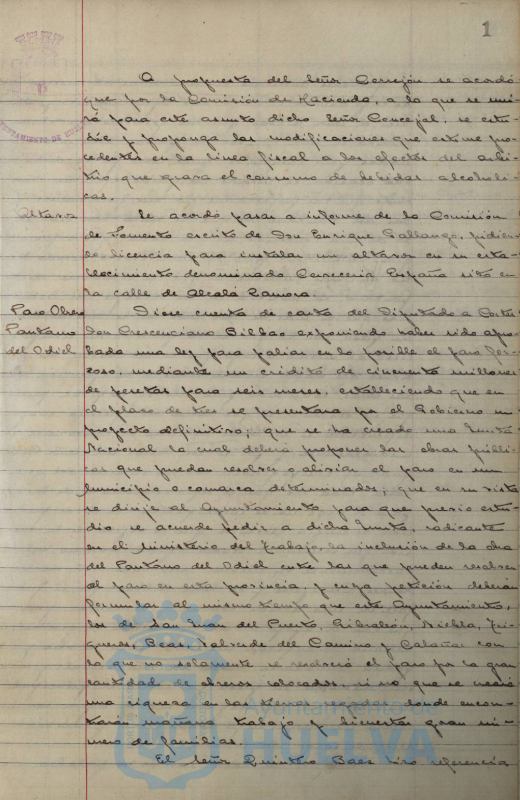 1
A propuesta del Señor Cerrejón se acordó
que por la Comisión de Hacienda, a la que se uni-
rá para este asunto dicho Señor Concejal, se estu-
die y proponga las modificaciones que estime pro-
cedentes en la linea fiscal a los efectos del arbi-
trio que grava el consumo de bebidas alcoholi-
cas.
Altavoz
Se acordó pasar a informe de la Comisión
de Fomento escrito de Don Enrique Gallango, pidien-
do licencia para instalar un altavoz en su esta-
blecimiento denominado Cerveceria España sito en
la calle de Alcalá Zamora.
Paro Obrero
Pantano
del Odiel
Diose cuenta de carta del Diputado a Cortes
Don Crescenciano Bilbao exponiendo haber sido apro-
bada una ley para paliar en lo posible el paro for-
zoso, mediante un crédito de cincuenta millones
de pesetas para seis meses, estableciendo que en
el plazo de tres se presentara por el Gobierno un
proyecto definitivo; que se ha creado una Junta
Nacional la cual deberá proponer las obras públi-
cas que puedan resolver o aliviar el paro en un
municipio o comarca determinados; que en su vista
se dirije al Ayuntamiento para que previo estu-
dio se acuerde pedir a dicha Junta, radicante
en el Ministerio del Trabajo, la inclusión de la obra
del Pantano del Odiel entre las que pueden resolver
el paro en esta provincia, y cuya petición deberán
formular al mismo tiempo que este Ayuntamiento,
los de San Juan del Puerto, Gibraleón, Niebla, Tri-
gueros, Beas, Valverde del Camino y Calañas con
la que no solamente se resolverá el paro por la gran
cantidad de obreros colocados, si no que se
una riqueza en las tierras regables donde encon-
trarán mañana trabajo y bienestar gran nú-
mero de familias.
El Señor Quintero Baez hizo referencia
Ayuntamiento de
HUELVA